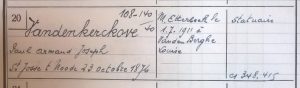 20
108-140
Vandenkerckove 40
Paul Armand Joseph
St Josse t Noode 23 octobre 1876
M. Etterbeek le
1.7.1911 à
Vanden Berghe
Louise
Statuaire
a 348.415